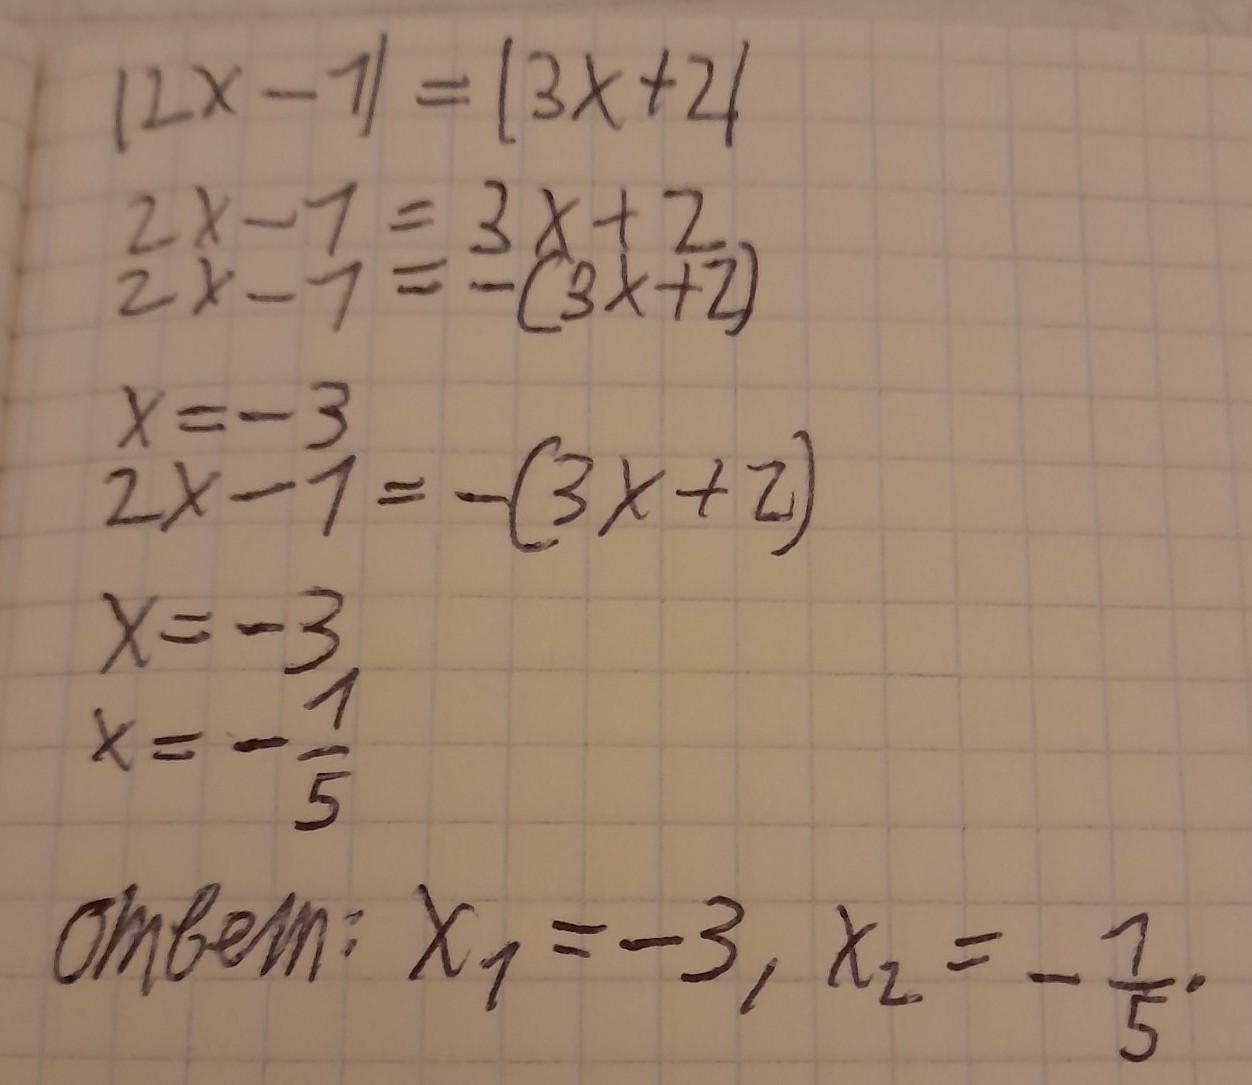 |2x-1| = |3x+2|
2x-1 = 3x+2
2x-1 = -(3x+2)
x=-3
2x-1 = -(3x+2)
x=-3
x=-1/5
ответ: x₁ = -3, x₂ = -1/5.